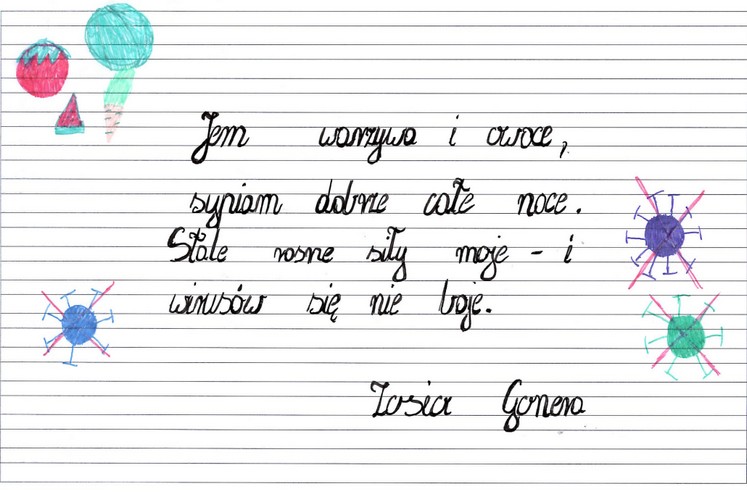 Jem warzywa i owoce,
sypiam dobrze całe noce.
Stale rosne siły moje - i
wirusów się nie boje.
Zosia Gonera